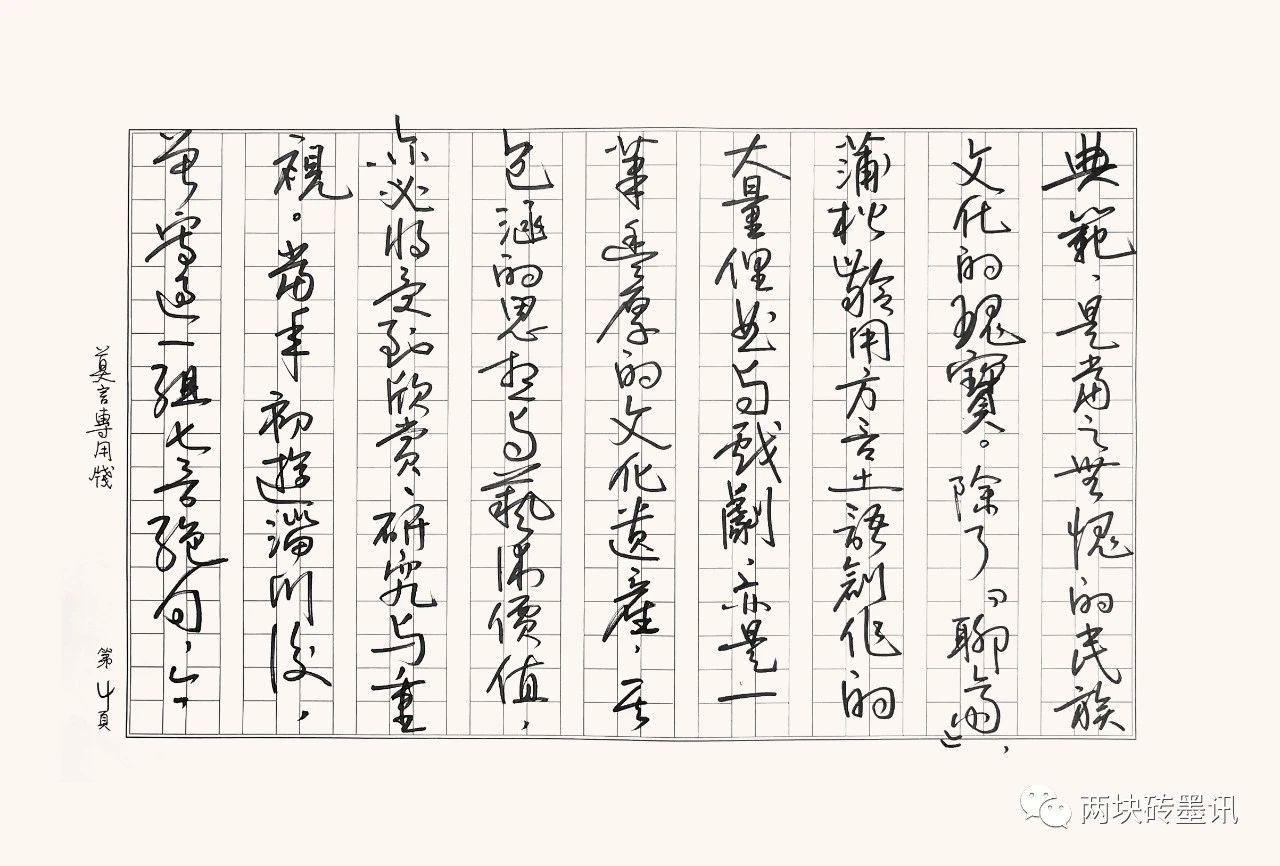 典範、是當之無愧的民族
文化的瑰寶。除了『聊齋』，
蒲松齡用方言土語創作的
大量俚曲与戲劇、亦是一
筆豐厚的文化遺產，其
包涵的思想与藝術價值，
亦必將受到欣賞、研究与重
視。當年初遊淄川後，
曾寫過一組七言絕句，今
莫言專用牋
第4頁
两块砖墨讯